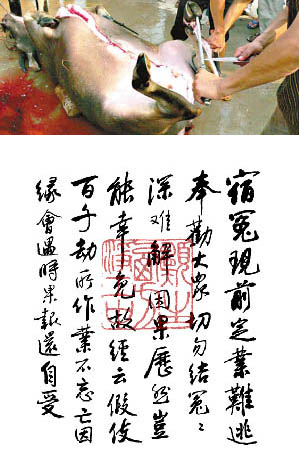 宿冤現前定業難逃
奉勸大家切勿結冤〻
深难解因果歷然豈
能幸免故經云假使
百千劫所作業不忘亡因
緣會遇時果報還自受